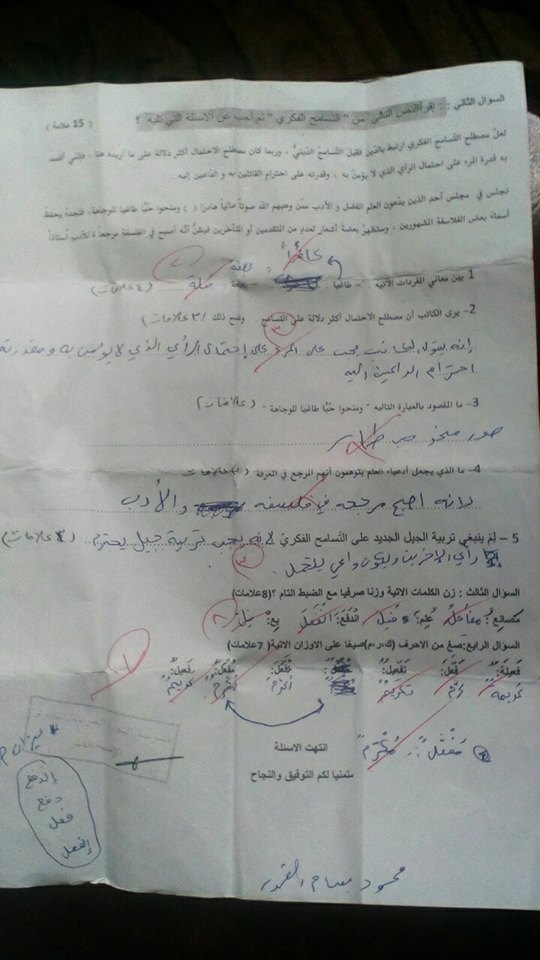 السؤال الثاني : : إقرأ النص التالي من " التسامح الفكري " ثم أجب عن الأسئلة التي تليه ؟ ( 15 علامة )
لعل مصطلح التسامح الفكري ارتبط بالدين فقيل التسامح الديني ، وربما كان مصطلح الاحتمال أكثر دلالة على ما أريده هنا ، فإنني أقصد
به قدرة المرء على احتمال الرأي الذي لا يؤمن به ، وقدرته على احترام القائلين به و الداعين إليه
تجلس في مجلس أحد الذين يدعون العلم الفضل و الأدب ممن وهبهم الله صوتاً عالياً هادرا ( ) ومنحوا حبًا طاغيا للوجاهة، فتجدة يحفظ
أسماء بعض الفلاسفة المشهورين ، وستظهر بعضة أشعار لعدد من المتقدمين أو المتأخرين فيظن أنه أصبح في الفلسفة مرجعاً و للأدب أستاذاً
1 بين معاني المفردات الآتية - طاغيا - (٤ علامات)
2- يرى الكاتب أن مصطلح الاحتمال أكثر دلالة على التسامح وضح ذلك (٣ علامات)
على إحتمال الرأي الذي لا يؤمن به و مقدرته
احترام الداعين إليه
3- ما المقصود بالعبارة التالية - ومنحوا حبًا طاغيا للوجاهة - علامات)
4- ما الذي يجعل أدعياء العلم يتوهمون أنهم المرجع في المعرفة علامات
لانه اصبح مرجعه في فلسفه والأدب
5 – لم ينبغي تربية الجيل الجديد على التسامح الفكري لانه يجب تربية جيل يحترم (٣ علامات)
رأي الآخرين
السؤال الثالث : زن الكلمات الآتية وزنا صرفيا مع الضبط التام ؟(8علامات)
مصانع: مفاعل عُلِم: فُعِلَ اندفع: انْفَعَلَ بِع: فِلْ ٨
السؤال الرابع:صغ من الاحرف (ك،ر،م)صيغا على الاوزان الآتية؟( 7علامات) ٧
فعيلة: فَعَّلَ: تفعيل: أَفْعَلَ: مُفْعَل: فَعيل:
كريمة كرّم تكريم أكرم مُكرَم كريم
انتهت الاسئلة
متمنيا لكم التوفيق والنجاح
ميزان
إندفع
دفع
فعل
إنفعل
محمود بسام